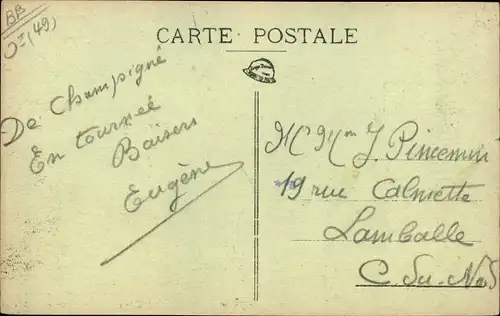 BB
(49)
CARTE POSTALE
De Champigné
En tournée
Baisers
Eugène
Mr Mm J. Pincemin
19 rue Calmette
Lamballe
C. du. Nord